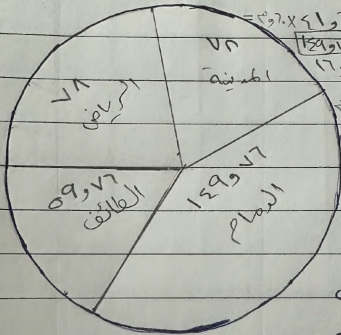 = ٣٦٠ × ٤١و
١٤٩و٧٦
١٦
٧٢
المدينة
٧٨
الرياض
٥٩و٧٦
الطائف
١٤٩و٧٦
الدمام